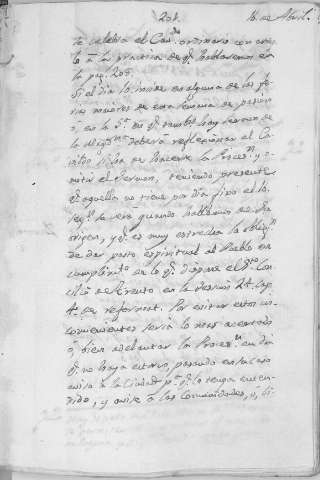 204. 16 de Abril.
te celebra el Cav.do ordinario con
to á la practica de q.e hablaremos en
la pag. 205.
Si el dia 16 incide en alguna de las fe-
rias mayores de esta semana de pasion
ó, en la S.ta en q.e tambien hay sermon de
la deverá reflexionar el Ca-
vildo si ha de hacerse la Proces.n y o-
mitir el Sermon, teniendo presente
q.e aquella no tiene por dia fixo el 16.
seg.n se verá quando hablemos de su
origen, y q.e es muy estrecha la oblig.n
de dar pasto espiritual al Pueblo en
cumplim.to de lo q.e dispone el S.to Con-
cilio de Trento en la session 24. cap.
4. de reformat. Por evitar estos in-
convenientes seria lo mas acertado
ó, bien adelantar la Proces.n en dia
q.e no haya estorvo, pasando en tal caso
aviso a la Ciudad p.a q.e lo tenga enten-
dido, y avise á las Comunidades, ó, di-